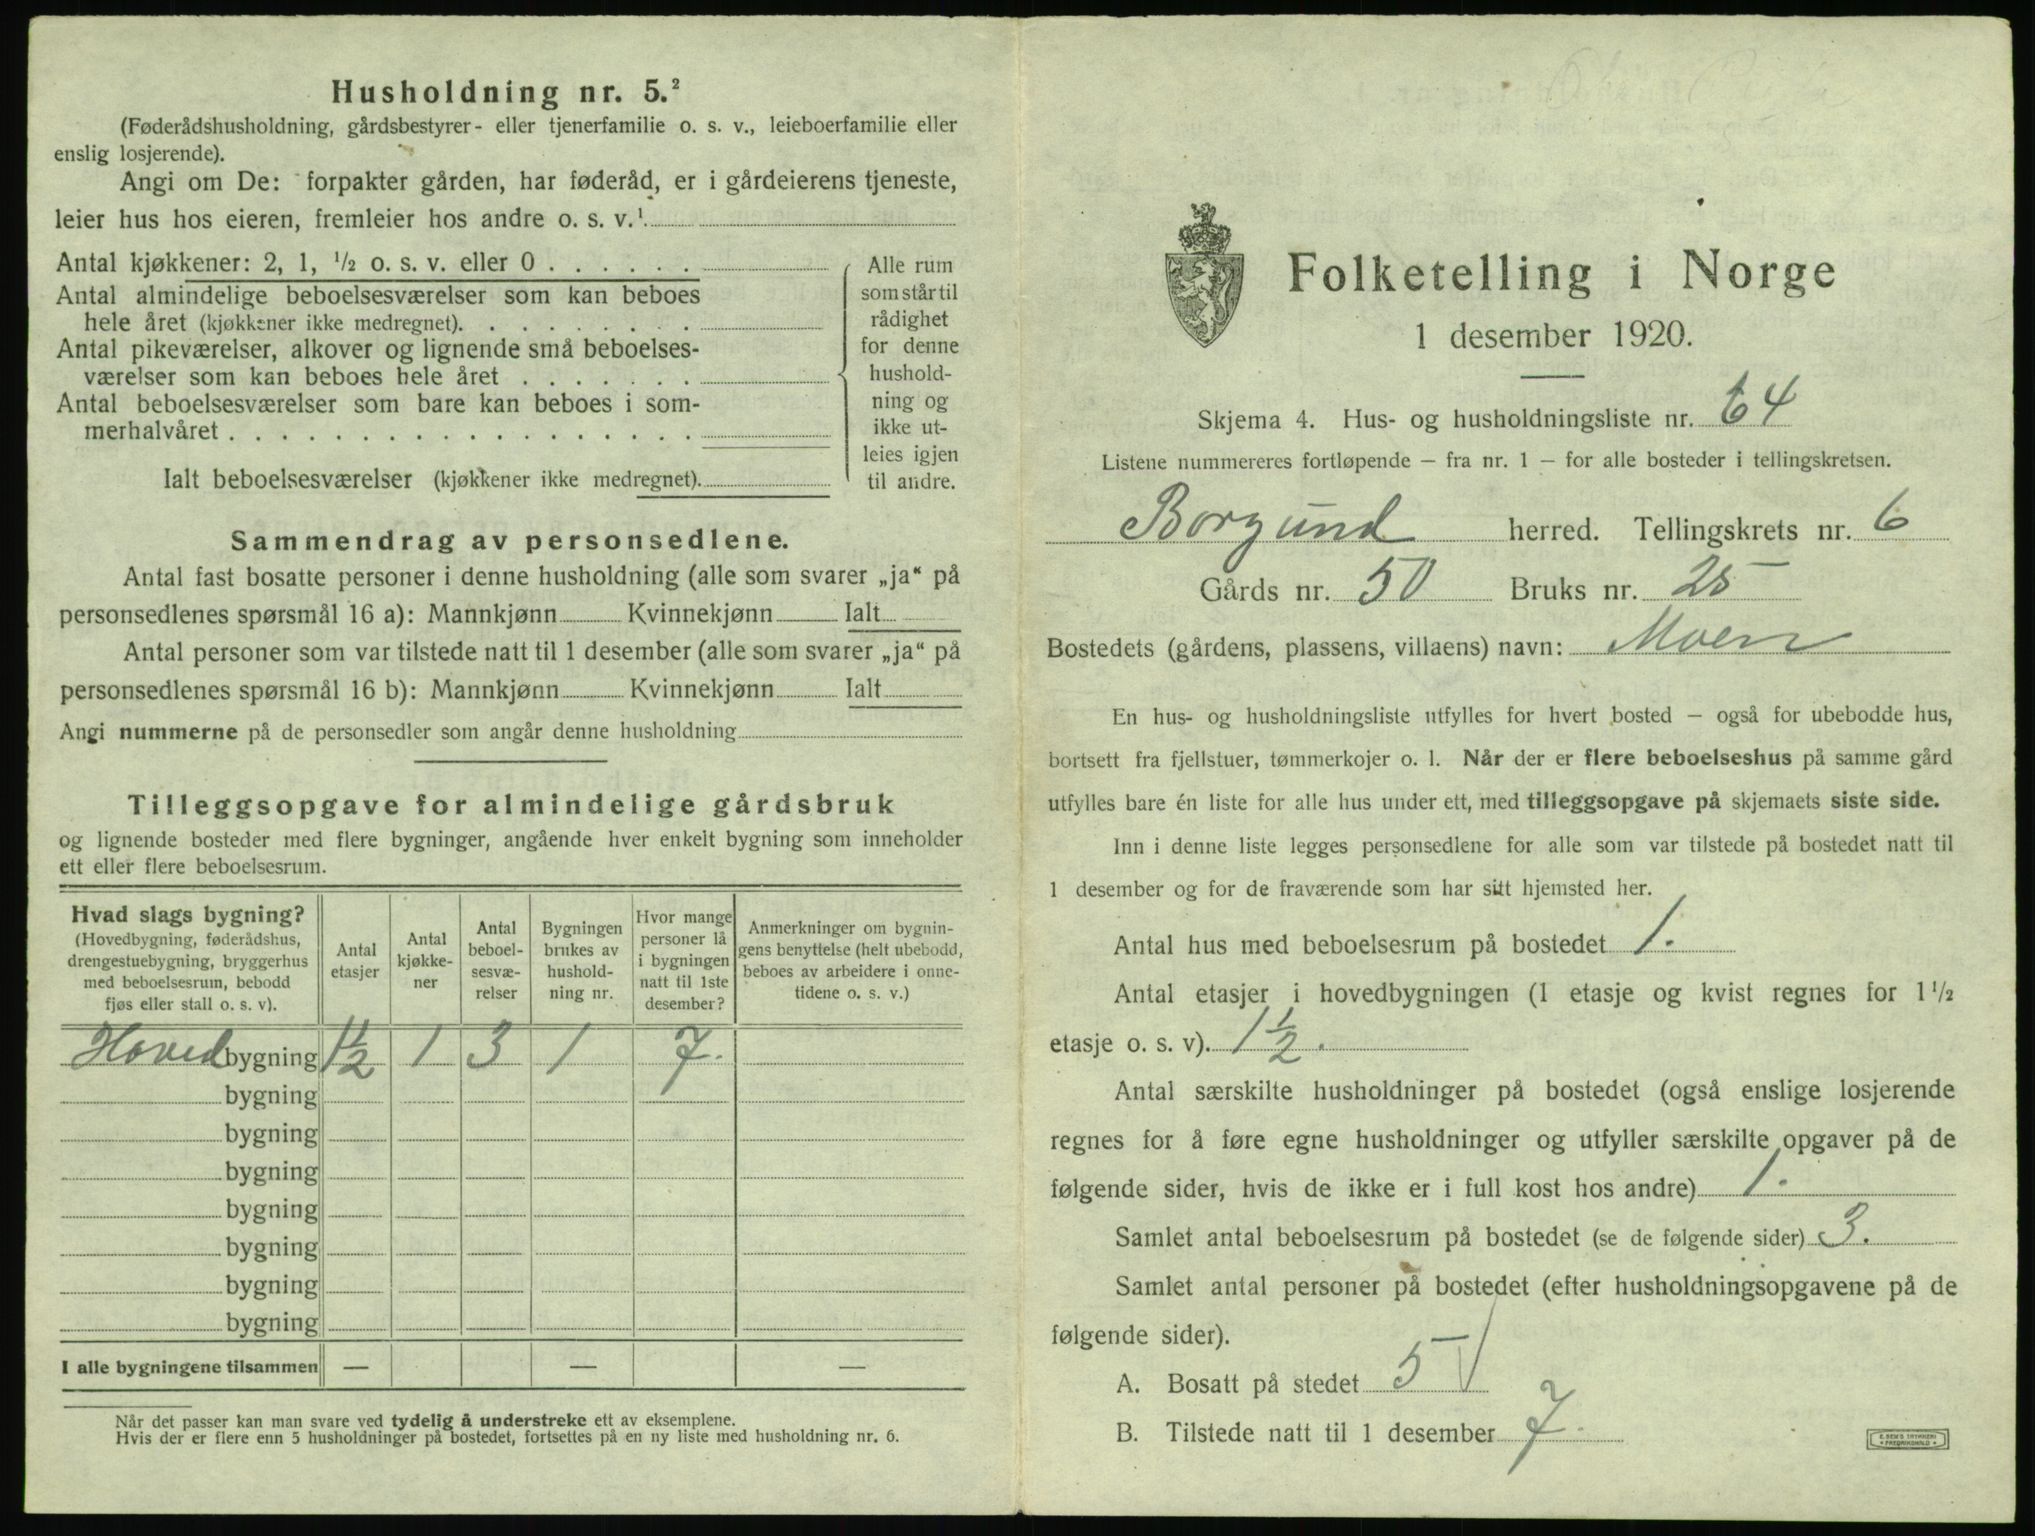 Husholdning nr. 5.²
(Føderådshusholdning, gårdsbestyrer- eller tjenerfamilie o. s. v., leieboerfamilie eller
enslig losjerende).
Angi om De: forpakter gården, har føderåd, er i gårdeierens tjeneste,
leier hus hos eieren, fremleier hos andre o. s. v.¹
Antal kjøkkener: 2, 1, ½ o. s. v. eller 0 . . . . . .
Antal almindelige beboelsesværelser som kan beboes
hele året (kjøkkener ikke medregnet). . . . . . . . .
Antal pikeværelser, alkover og lignende små beboelses-
værelser som kan beboes hele året . . . . . . .
Antal beboelsesværelser som bare kan beboes i som-
merhalvåret . . . . . . . . . . . . . . . . . .
Ialt beboelsesværelser (kjøkkener ikke medregnet).
Alle rum
som står til
rådighet
for denne
hushold-
ning og
ikke ut-
leies igjen
til andre.
Sammendrag av personsedlene.
Antal fast bosatte personer i denne husholdning (alle som svarer „ja“ på
personsedlenes spørsmål 16 a): Mannkjønn Kvinnekjønn Ialt
Antal personer som var tilstede natt til 1 desember (alle som svarer „ja“ på
personsedlenes spørsmål 16 b): Mannkjønn Kvinnekjønn Ialt
Angi nummerne på de personsedler som angår denne husholdning
Tilleggsopgave for almindelige gårdsbruk
og lignende bosteder med flere bygninger, angående hver enkelt bygning som inneholder
ett eller flere beboelsesrum.
Hvad slags bygning?
(Hovedbygning, føderådshus,
drengestuebygning, bryggerhus
med beboelsesrum, bebodd
fjøs eller stall o. s. v).
Antal
etasjer
Antal
kjøkke-
ner
Antal
beboel-
sesvæ-
relser
Bygningen
brukes av
hushold-
ning nr.
Hvor mange
personer lå
i bygningen
natt til 1ste
desember?
Anmerkninger om bygnin-
gens benyttelse (helt ubebodd,
beboes av arbeidere i onne-
tidene o. s. v.)
Hoved bygning 1½ 1 3 1 7.
bygning
bygning
bygning
bygning
bygning
bygning
bygning
I alle bygningene tilsammen — — —
Når det passer kan man svare ved tydelig å understreke ett av eksemplene.
Hvis der er flere enn 5 husholdninger på bostedet, fortsettes på en ny liste med husholdning nr. 6.
Folketelling i Norge
1 desember 1920.
Skjema 4. Hus- og husholdningsliste nr. 64
Listene nummereres fortløpende — fra nr. 1 — for alle bosteder i tellingskretsen.
Borgund herred. Tellingskrets nr. 6
Gårds nr. 50 Bruks nr. 25
Bostedets (gårdens, plassens, villaens) navn: Moen
En hus- og husholdningsliste utfylles for hvert bosted — også for ubebodde hus,
bortsett fra fjellstuer, tømmerkojer o. l. Når der er flere beboelseshus på samme gård
utfylles bare én liste for alle hus under ett, med tilleggsopgave på skjemaets siste side.
Inn i denne liste legges personsedlene for alle som var tilstede på bostedet natt til
1 desember og for de fraværende som har sitt hjemsted her.
Antal hus med beboelsesrum på bostedet 1.
Antal etasjer i hovedbygningen (1 etasje og kvist regnes for 1½
etasje o. s. v). 1½.
Antal særskilte husholdninger på bostedet (også enslige losjerende
regnes for å føre egne husholdninger og utfyller særskilte opgaver på de
følgende sider, hvis de ikke er i full kost hos andre) 1.
Samlet antal beboelsesrum på bostedet (se de følgende sider) 3.
Samlet antal personer på bostedet (efter husholdningsopgavene på de
følgende sider).
A. Bosatt på stedet 5
B. Tilstede natt til 1 desember 7.
E. SEM'S TRYKKERI
• FREDRIKSHALD •